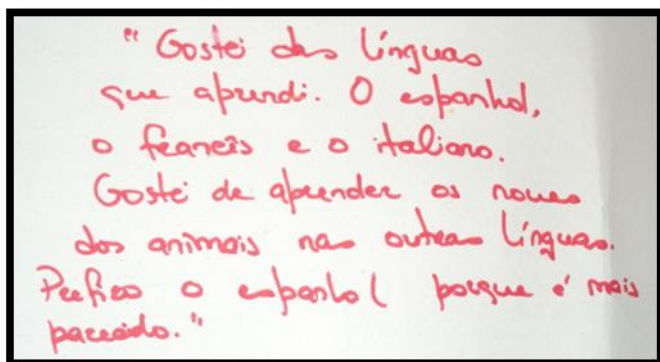 "Gostei das línguas
que aprendi. O espanhol,
o francês e o italiano.
Gostei de aprender os nomes
dos animais nas outras línguas.
Prefiro o espanhol porque é mais
parecido."